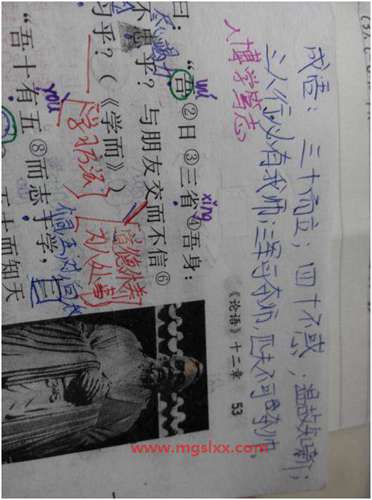 成语：三十而立；四十不惑；温故知新；
三人行必有我师；三军可夺帅，匹夫不可夺
博学笃志
《论语》十二章 53
wú
xǐng
曰：“吾②日③三省④吾身：
不忠乎？与朋友交而不信⑥
习乎？（《学而》）
学习方法
为人处事
yòu
“吾十有五⑧而志于学，
十而知天
www.mgslxx.com